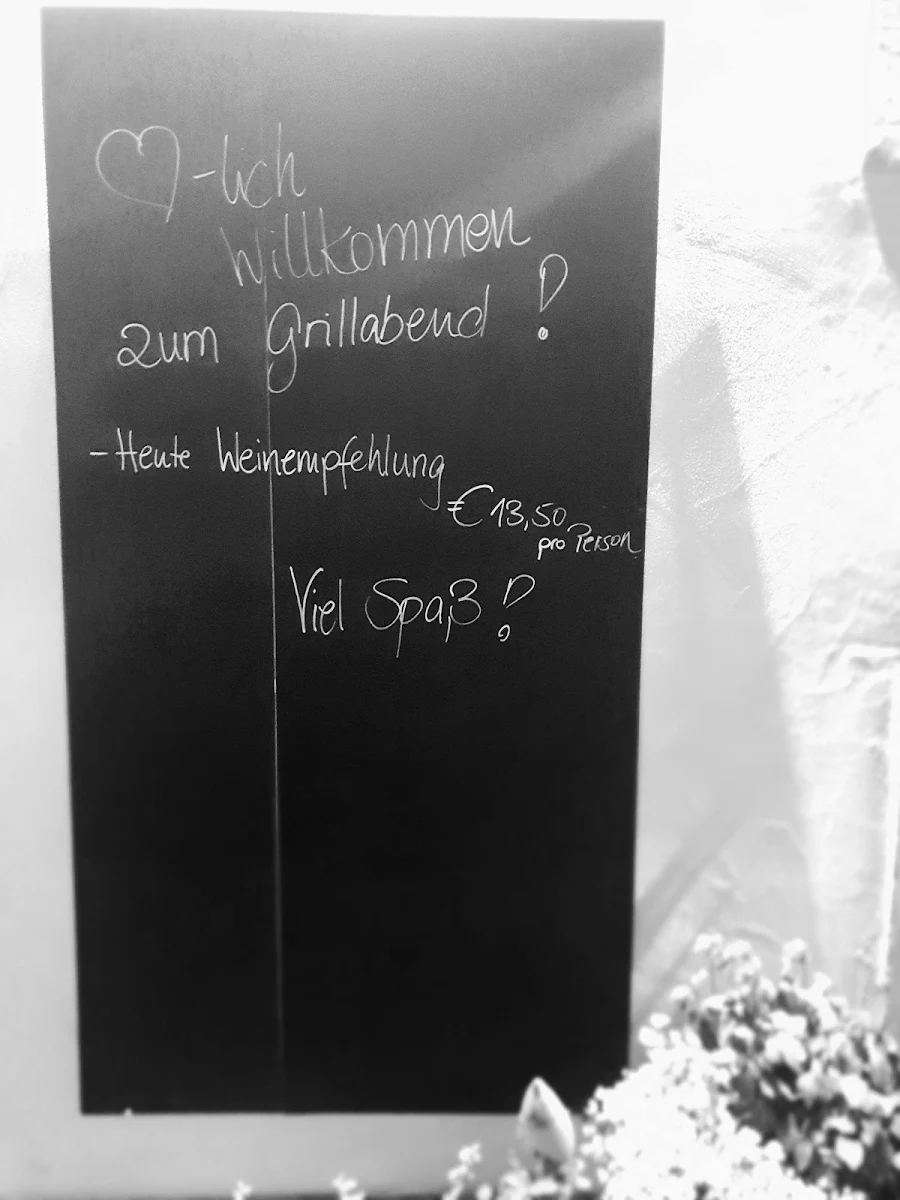 ♡-lich
Willkommen
zum Grillabend !
- Heute Weinempfehlung
€ 13,50
pro Person
Viel Spaß !